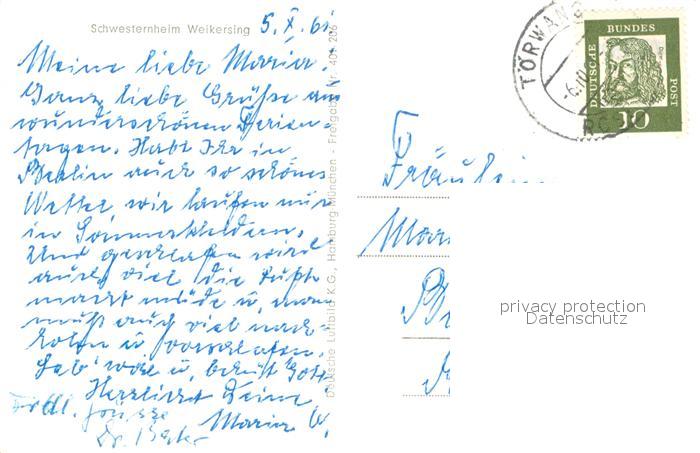 Schwesternheim Weikersing 5.X.61
Meine liebe Maria.
Ganz liebe Grüße aus
wunderschönen Ferien-
tagen. Habt Ihr in
Berlin auch so schönes
Wetter, wir laufen nur
in Sommerkleidern.
Und geschlafen wird
auch viel die Luft
macht müde u. man
muß auch viel nach-
holen u. vorschlafen.
Leb' wohl u. behüt Gott
Herzlichst Deine
Maria W.
Frdl. Grüsse
Dr.
Deutsche Luftbild K.G., Hamburg München - Freigabe Nr. 401 206
TÖRWANG
DEUTSCHE BUNDES POST
10
Fräulein
privacy protection
Datenschutz